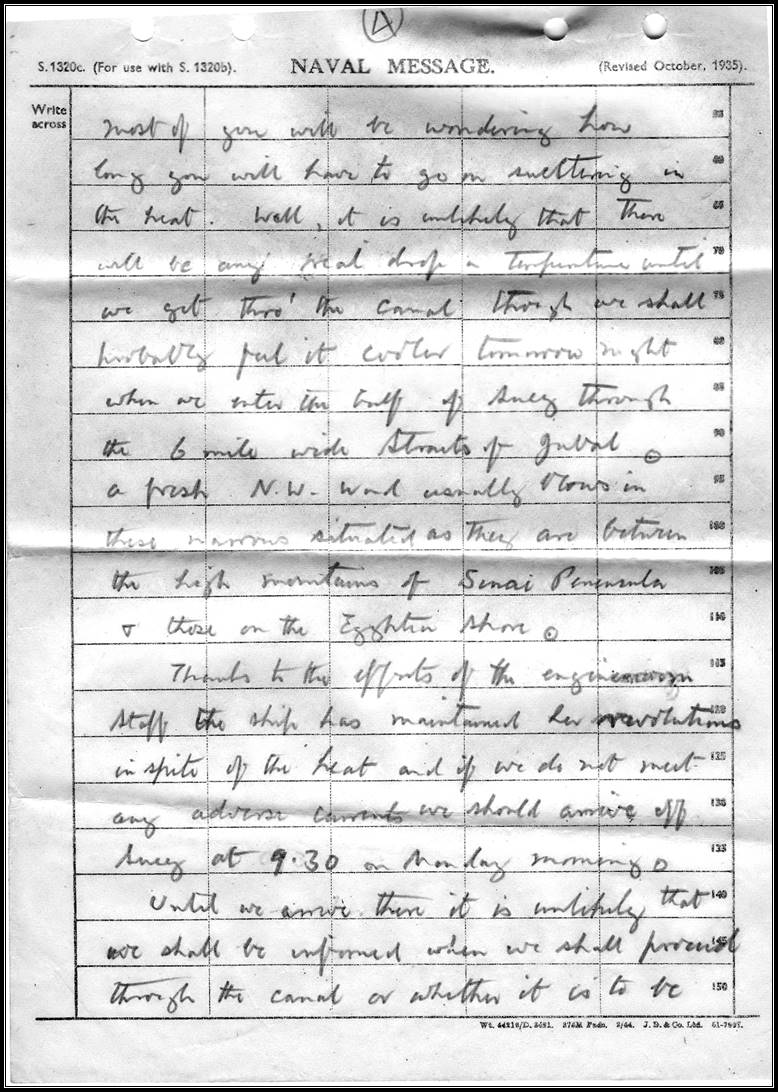 A
S. 1320c. (For use with S. 1320b). NAVAL MESSAGE. (Revised October, 1935).
Write across
most of you will be wondering how 55
long you will have to go on sweltering in 60
the heat. Well, it is unlikely that there 65
will be any real drop in temperature until 70
we get thro' the canal though we shall 75
probably feel it cooler tomorrow night 80
when we enter the Gulf of Suez through 85
the 6 mile wide Straits of Jubal. 90
a fresh N.W. wind usually blows in 95
these narrows situated as they are between 100
the high mountains of Sinai Peninsula 105
& those on the Egyptian shore. 110
Thanks to the efforts of the engineroom 115
staff the ship has maintained her revolutions 120
in spite of the heat and if we do not meet 125
any adverse currents we should arrive off 130
Suez at 9.30 on Monday morning. 135
Until we arrive there it is unlikely that 140
we shall be informed when we shall proceed 145
through the canal or whether it is to be 150
J. D. & Co. Ltd.